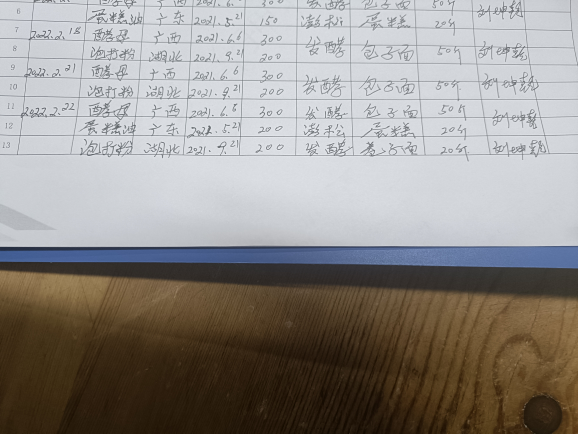 6 蛋糕油 广东 2021.5.21 150 澎松 蛋糕 20斤 刘坤乾
7 2022.2.18 酵母 广西 2021.6.6 300 发酵 包子面 50斤 刘坤乾
8 泡打粉 湖北 2021.9.21 200
9 2022.2.21 酵母 广西 2021.6.6 300 发酵 包子面 50斤 刘坤乾
10 泡打粉 湖北 2021.9.21 200
11 2022.2.22 酵母 广西 2021.6.6 300 发酵 包子面 50斤 刘坤乾
12 蛋糕油 广东 2021.5.21 200 澎松 蛋糕 20斤
13 泡打粉 湖北 2021.9.21 200 发酵 卷子面 20斤 刘坤乾